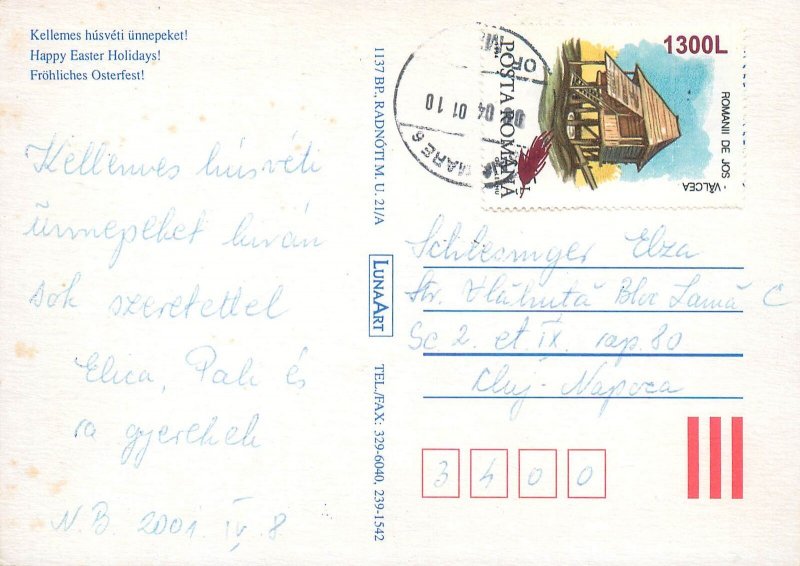 Kellemes húsvéti ünnepeket!
Happy Easter Holidays!
Fröhliches Osterfest!
Kellemes húsvéti
ünnepeket kíván
sok szeretettel
Elica, Pali és
a gyerekek
N.B. 2001 IV. 8
1137 BP., RADNÓTI M. U. 21/A
LUNAART
TEL./FAX: 329-6040, 239-1542
1300L
POŞTA ROMÂNĂ
ROMANII DE JOS - VÂLCEA
04 01 10
MARE 6
OF
Schlesinger Elza
Str. Bloc Lamă C
Sc 2. et IX. ap. 80
Cluj-Napoca
3400